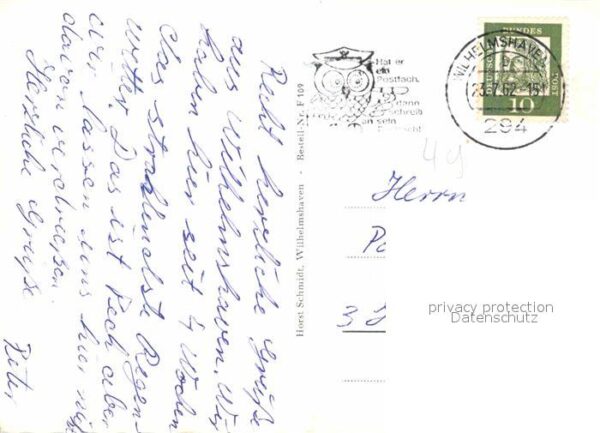 Recht herzliche Grüße
aus Wilhelmshaven. Wir
haben hier seit 4 Wochen
das strahlendste Regen-
wetter. Das ist Pech aber
wir lassen uns hier nicht
davon verdrießen.
Herzliche Grüße
Peter
Horst Schmidt, Wilhelmshaven - Bestell-Nr. F 109
Hat er
ein
Postfach,
dann
schreib
an sein
WILHELMSHAVEN
294
BUNDES
POST
10
49
Herrn
3
privacy protection
Datenschutz